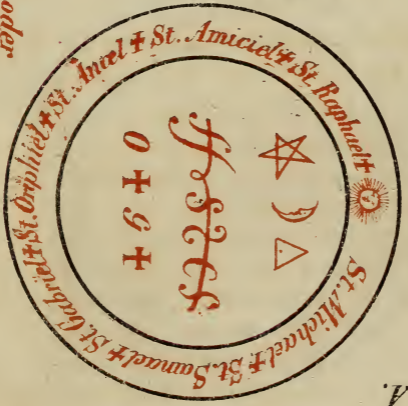 oder
St. Michael ✝ St. Samael ✝ St. Gabriel ✝ St. Oriphiel ✝ St. Aniel ✝ St. Amiciel ✝ St. Raphael ✝
0 ✝ 9 ✝
A.